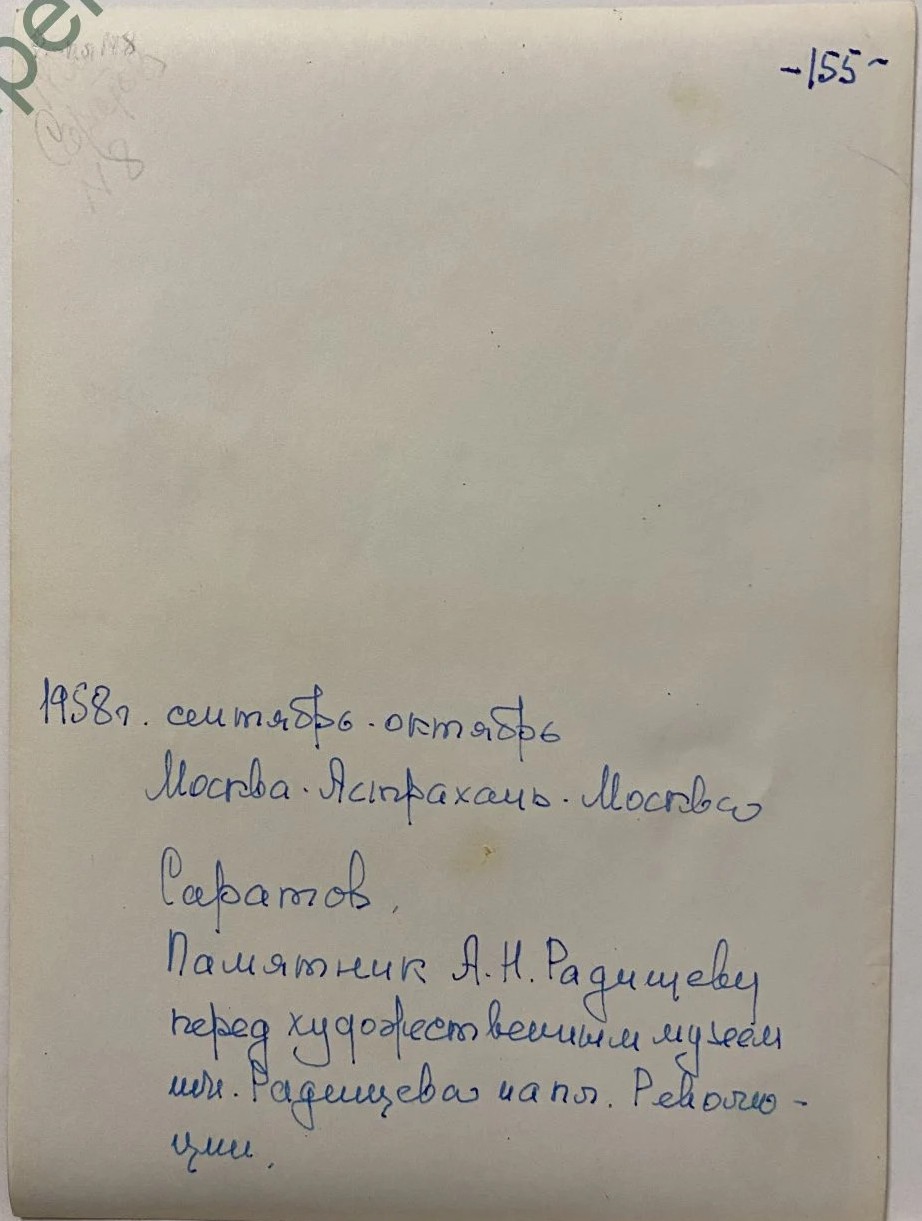 -155-
Саратов
N8
1958г. сентябрь-октябрь
Москва-Астрахань-Москва
Саратов.
Памятник А.Н. Радищеву
перед художественным музеем
им. Радищева на пл. Револю-
ции.